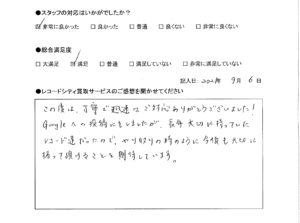 ●スタッフの対応はいかがでしたか？
☑非常に良かった □良かった □普通 □良くない □非常に良くない
●総合満足度
□大満足 ☑満足 □普通 □満足していない □非常に満足していない
記入日: 2021年 9月 6日
●レコードシティ買取サービスのご感想を聞かせてください
この度は、丁寧で迅速なご対応ありがとうございました！
Googleへの投稿にもしましたが、長年大切に持っていた
レコード達だったので、やり取りの時のように今後も大切に
扱って頂けることを期待しています。